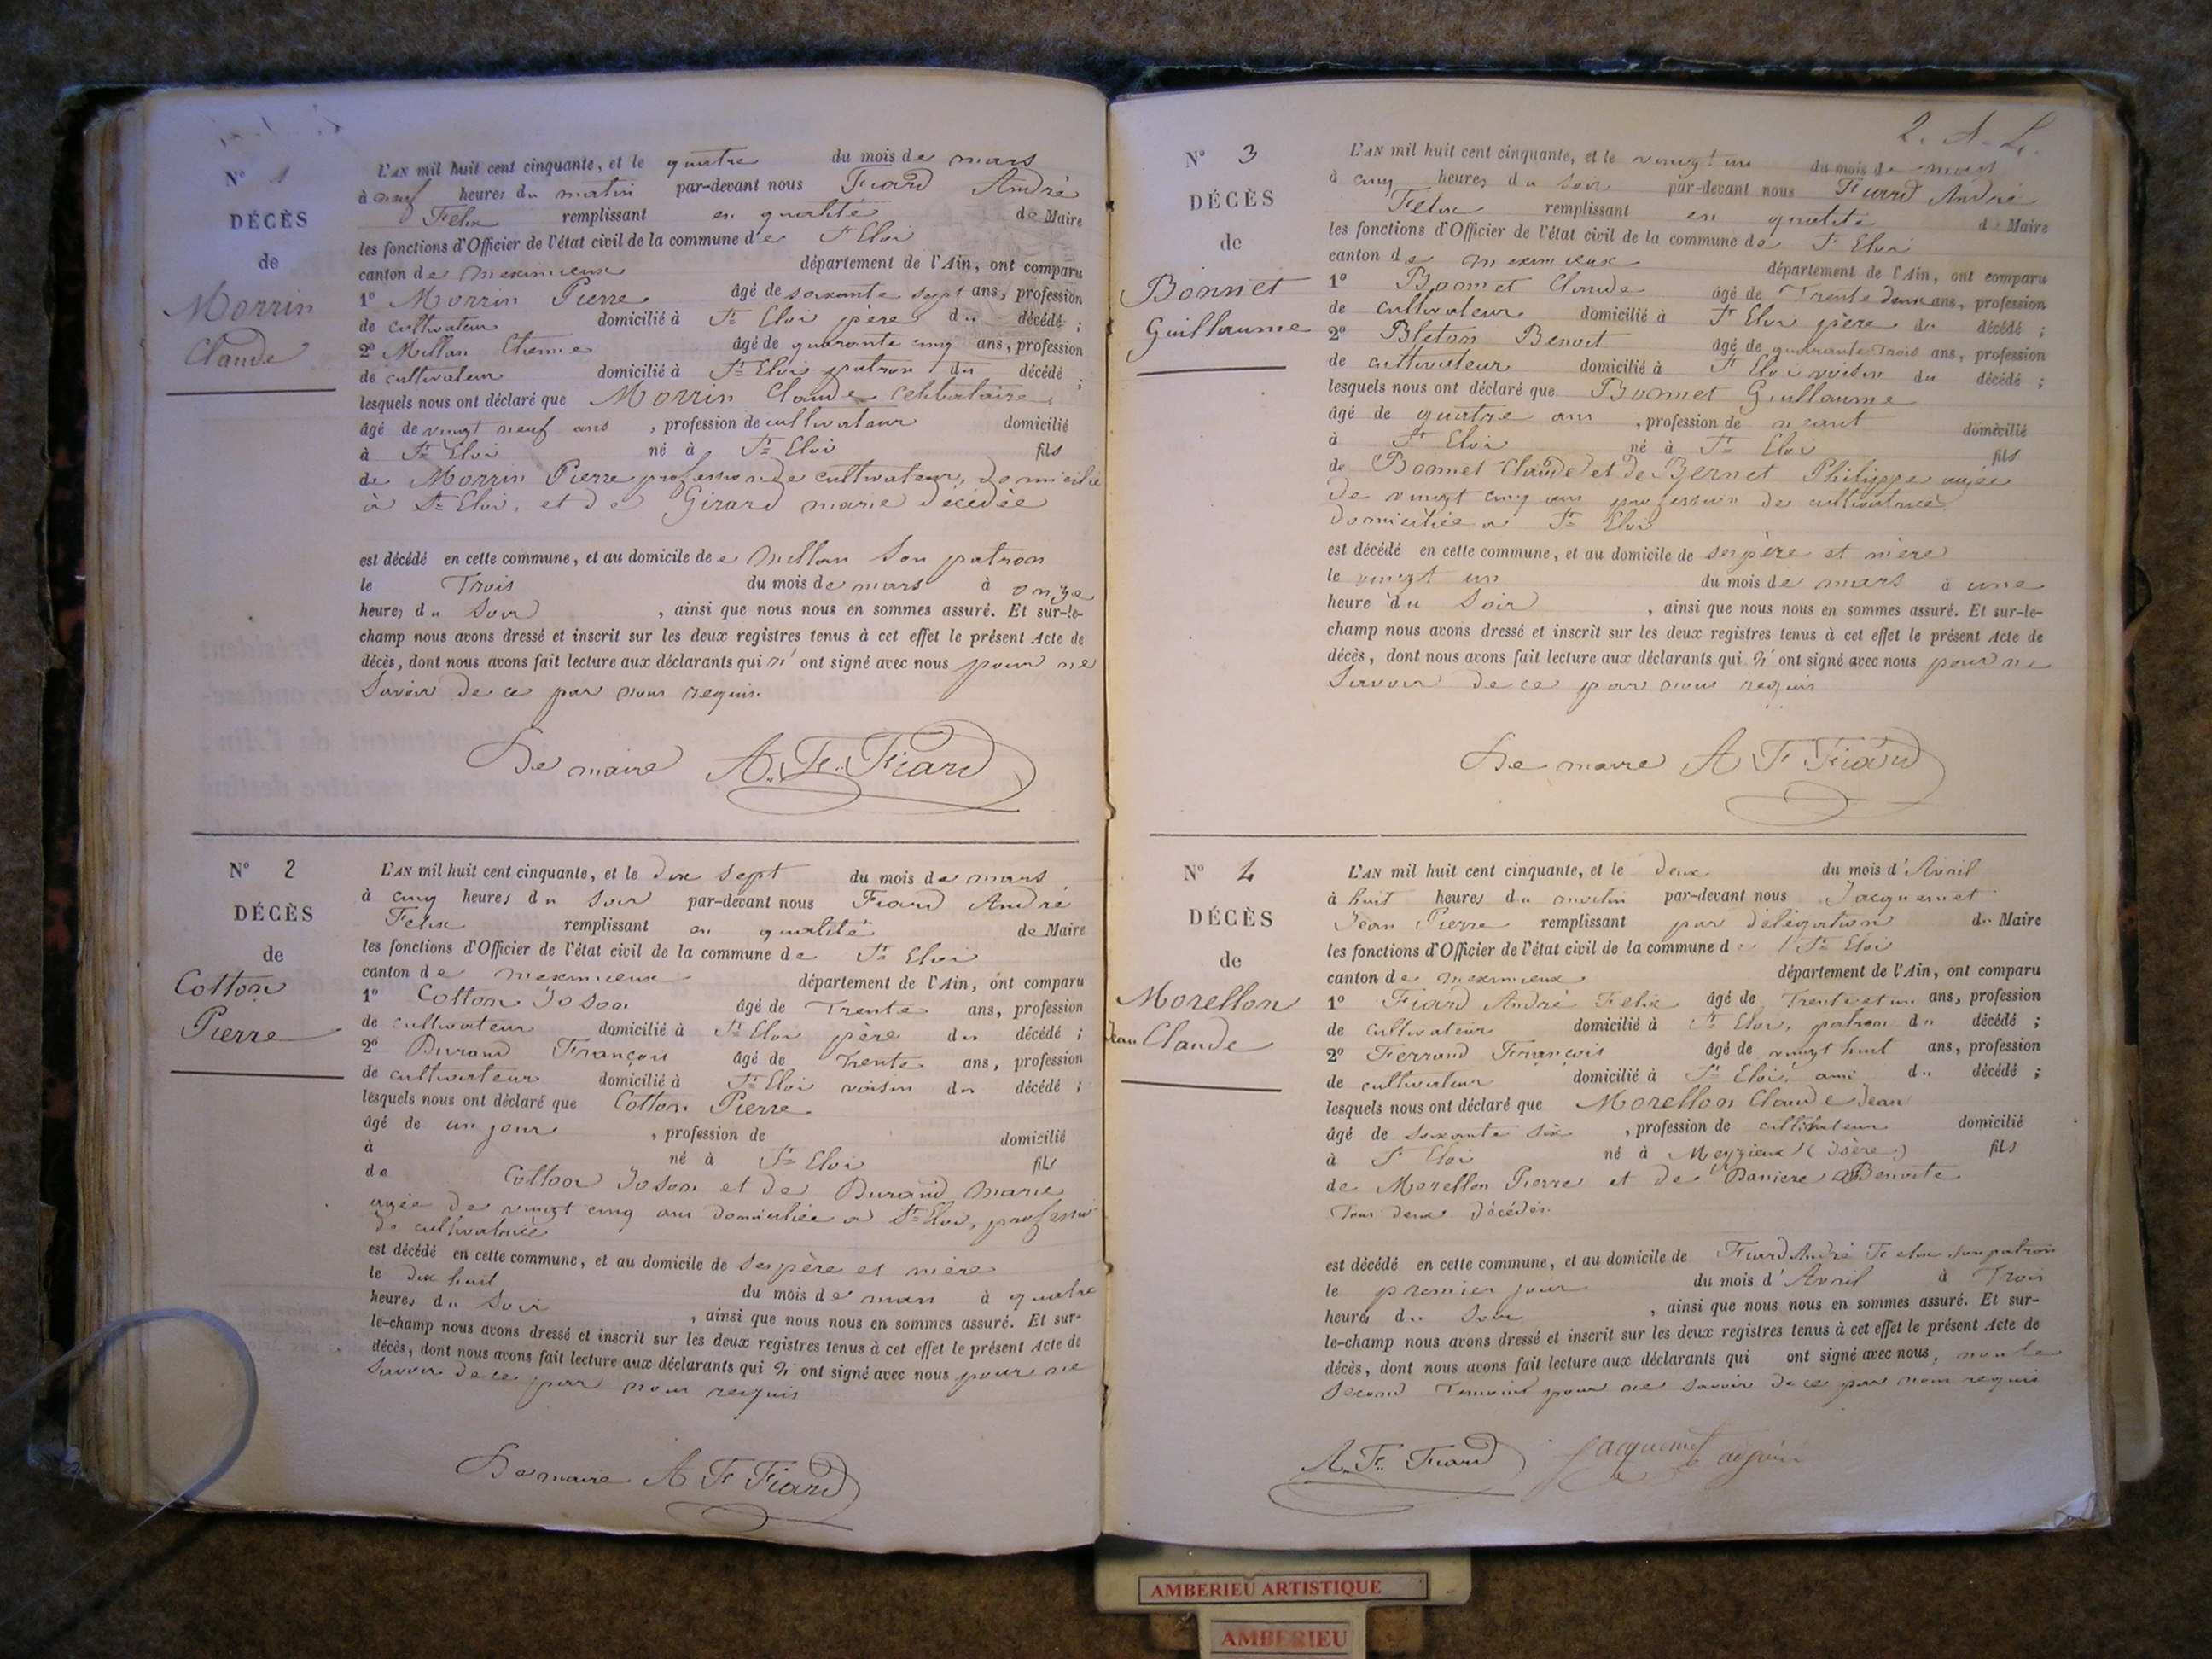 N° 1
DÉCÈS
de
Morrin
Claude
L'AN mil huit cent cinquante, et le quatre du mois de mars
à neuf heures du matin par-devant nous Fiard André
Felix remplissant en qualité de Maire
les fonctions d'Officier de l'état civil de la commune de St Eloi
canton de meximieux département de l'Ain, ont comparu
1° Morrin Pierre âgé de soixante sept ans, profession
de cultivateur domicilié à St Eloi père du décédé ;
2° Millan Etienne âgé de quarante cinq ans, profession
de cultivateur domicilié à St Eloi patron du décédé ;
lesquels nous ont déclaré que Morrin Claude Celibataire
âgé de vingt neuf ans , profession de cultivateur domicilié
à St Eloi né à St Eloi fils
de Morrin Pierre profession de cultivateur, domicilié
à St Eloi, et de Girard marie décédée
est décédé en cette commune, et au domicile de Millan Son patron
le Trois du mois de mars à onze
heures du Soir , ainsi que nous nous en sommes assuré. Et sur-le-
champ nous avons dressé et inscrit sur les deux registres tenus à cet effet le présent Acte de
décès, dont nous avons fait lecture aux déclarants qui n' ont signé avec nous pour ne
Savoir de ce par nous requis.
Le maire A. F. Fiard
N° 2
DÉCÈS
de
Cotton
Pierre
L'AN mil huit cent cinquante, et le dix sept du mois de mars
à cinq heures du soir par-devant nous Fiard André
Felix remplissant en qualité de Maire
les fonctions d'Officier de l'état civil de la commune de St Eloi
canton de meximieux département de l'Ain, ont comparu
1° Cotton Joson âgé de Trente ans, profession
de cultivateur domicilié à St Eloi père du décédé ;
2° Durand François âgé de Trente ans, profession
de cultivateur domicilié à St Eloi voisin du décédé ;
lesquels nous ont déclaré que Cotton Pierre
âgé de un jour , profession de domicilié
à né à St Eloi fils
de Cotton Joson et de Durand Marie
agée de vingt cinq ans domiciliée a St Eloi, profession
de cultivatrice
est décédé en cette commune, et au domicile de Ses père et mère
le dix huit du mois de mars à quatre
heures du Soir , ainsi que nous nous en sommes assuré. Et sur-
le-champ nous avons dressé et inscrit sur les deux registres tenus à cet effet le présent Acte de
décès, dont nous avons fait lecture aux déclarants qui n' ont signé avec nous pour ne
Savoir de ce par nous requis
Le maire A F Fiard
N° 3
DÉCÈS
de
Bonnet
Guillaume
L'AN mil huit cent cinquante, et le vingt un du mois de mars
à cinq heures du soir par-devant nous Fiard André
Felix remplissant en qualité de Maire
les fonctions d'Officier de l'état civil de la commune de St Eloi
canton de meximieux département de l'Ain, ont comparu
1° Bonnet Claude âgé de Trente deux ans, profession
de cultivateur domicilié à St Eloi père du décédé ;
2° Bleton Benoit âgé de quarante Trois ans, profession
de cultivateur domicilié à St Eloi voisin du décédé ;
lesquels nous ont déclaré que Bonnet Guillaume
âgé de quatre ans , profession de néant domicilié
à St Eloi né à St Eloi fils
de Bonnet Claude et de Bernet Philippe agée
de vingt cinq ans profession de cultivatrice
domiciliée a St Eloi
est décédé en cette commune, et au domicile de ses père et mère
le vingt un du mois de mars à une
heure du Soir , ainsi que nous nous en sommes assuré. Et sur-le-
champ nous avons dressé et inscrit sur les deux registres tenus à cet effet le présent Acte de
décès, dont nous avons fait lecture aux déclarants qui n' ont signé avec nous pour ne
Savoir de ce par nous requis
Le maire A F Fiard
N° 4
DÉCÈS
de
Morellon
Jean Claude
L'AN mil huit cent cinquante, et le deux du mois d'Avril
à huit heures du matin par-devant nous Jacquemet
Jean Pierre remplissant par délégation du Maire
les fonctions d'Officier de l'état civil de la commune de St Eloi
canton de meximieux département de l'Ain, ont comparu
1° Fiard André Felix âgé de Trente et un ans, profession
de cultivateur domicilié à St Eloi, patron du décédé ;
2° Ferrand François âgé de vingt huit ans, profession
de cultivateur domicilié à St Eloi ami du décédé ;
lesquels nous ont déclaré que Morellon Claude Jean
âgé de soixante six , profession de cultivateur domicilié
à St Eloi né à Meyzieux (Isère) fils
de Morellon Pierre et de Baniere Benoite
Tous deux décédés.
est décédé en cette commune, et au domicile de Fiard André Felix son patron
le premier jour du mois d'Avril à Trois
heures du Soir , ainsi que nous nous en sommes assuré. Et sur-
le-champ nous avons dressé et inscrit sur les deux registres tenus à cet effet le présent Acte de
décès, dont nous avons fait lecture aux déclarants qui ont signé avec nous, non le
Second Temoint pour ne Savoir de ce par nous requis
A. F. Fiard Jacquemet adjoint
AMBERIEU ARTISTIQUE
AMBERIEU